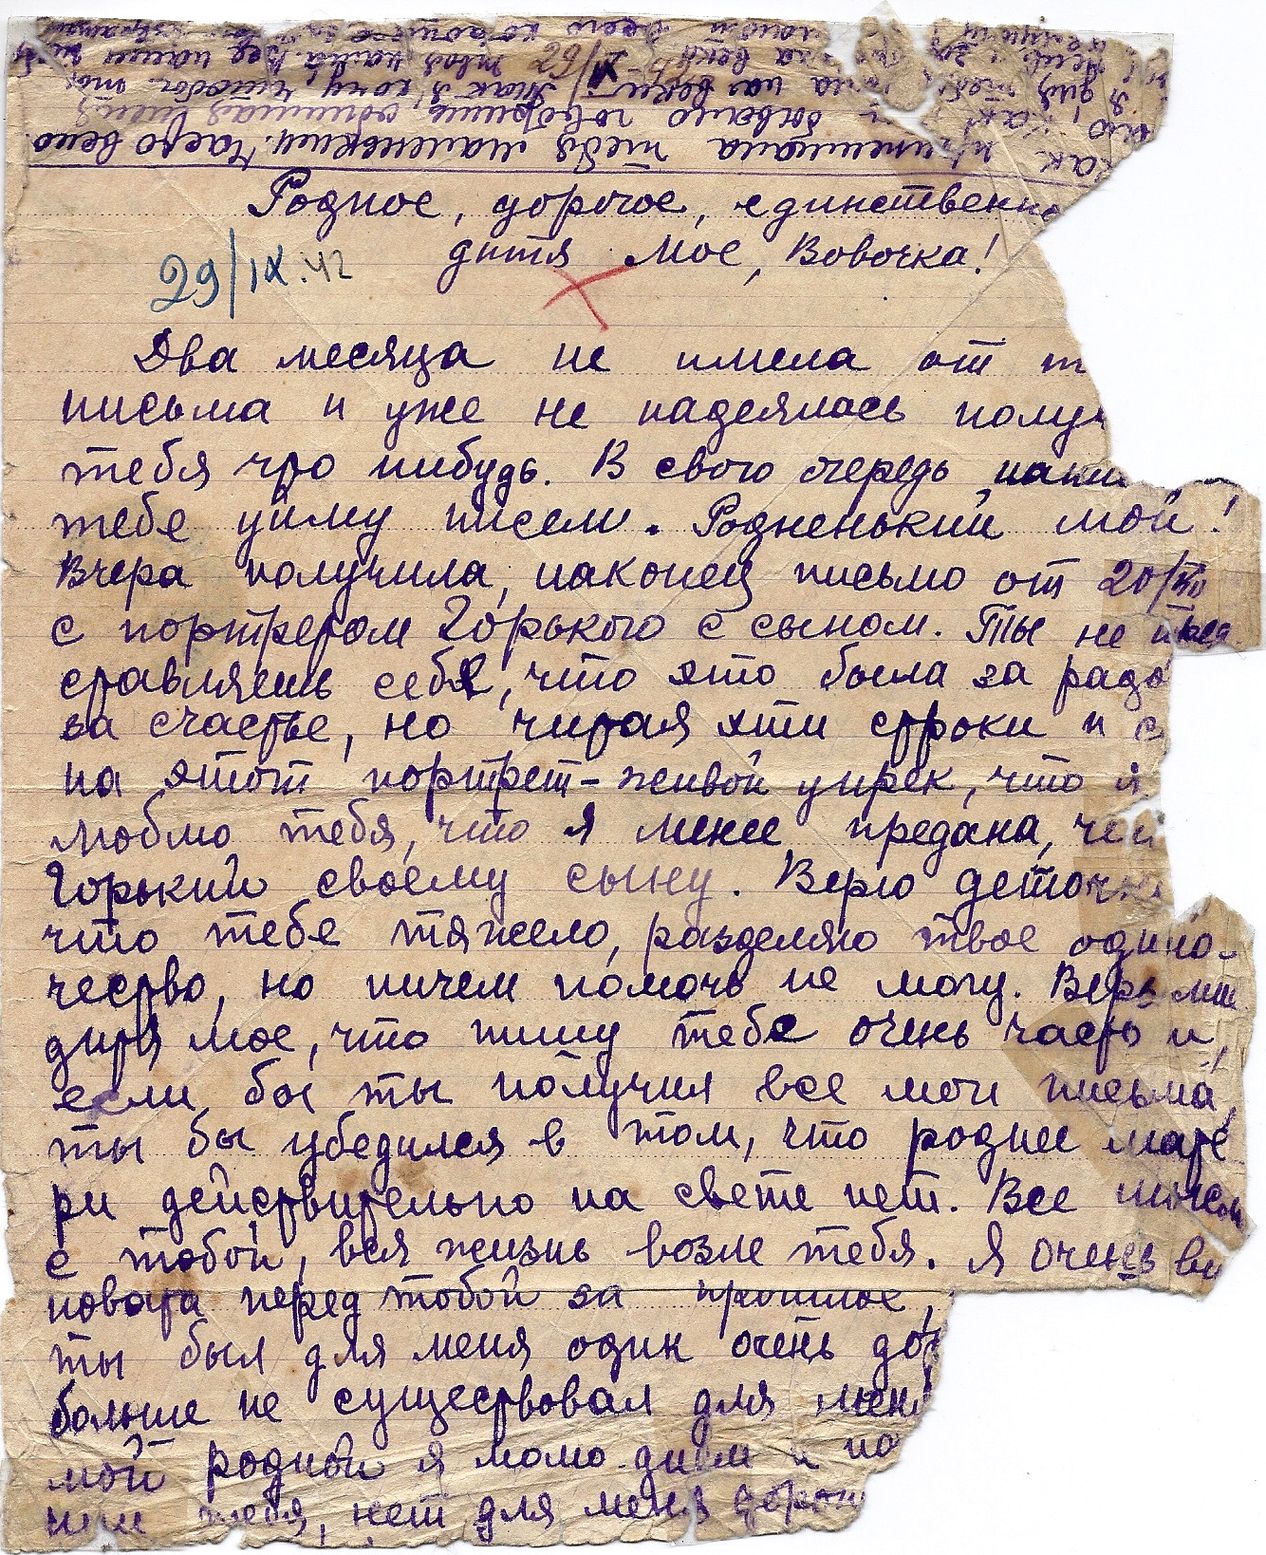 Родное, дорогое, единственно
дитя мое, Вовочка!
29/IX.42
Два месяца не имела от т
письма и уже не надеялась получ
тебя что нибудь. В свою очередь, напи
тебе уйму писем. Родненький мой!
Вчера получила, наконец письмо от 20/
с портретом Горького с сыном. Ты не пред
ставляешь себе, что это была за радо
за счастье, но читая эти строки и с
на этот портрет - живой упрек, что я
люблю тебя, что я менее предана, чем
Горький своему сыну. Верю деточка
что тебе тяжело, разделяю твое одино-
чество, но ничем помочь не могу. Верь мне
дитя мое, что пишу тебе очень часто и,
если бы ты получил все мои письма,
ты бы убедился в том, что роднее мате
ри действительно на свете нет. Все
с тобой, вся жизнь возле тебя. Я очень ви
новата перед тобой за прошлое,
ты был для меня один очень до
больше не существовал для меня
мой родной я
тебя, нет для меня дорож
как пеленала тебя маленьким. Часто вспо